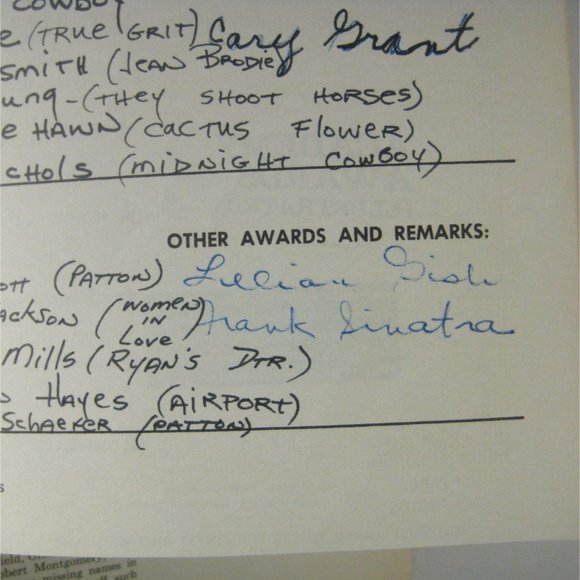 COWBOY
e (TRUE GRIT) Cary Grant
smith (JEAN BRODIE)
ung - (THEY SHOOT HORSES)
e HAWN (CACTUS FLOWER)
chols (MIDNIGHT COWBOY)
OTHER AWARDS AND REMARKS:
ott (PATTON) Lillian Gish
ackson (WOMEN IN LOVE) Frank Sinatra
Mills (RYAN'S DTR.)
HAYES (AIRPORT)
SCHAEFER (PATTON)
ield,
obert Montgomery,
missing names in
off such